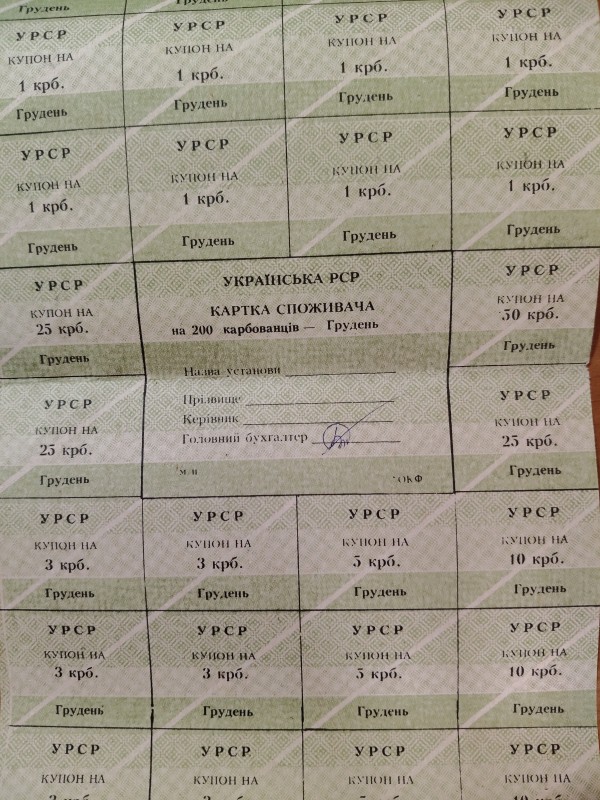 Грудень Грудень
УРСР УРСР УРСР УРСР
КУПОН НА КУПОН НА КУПОН НА КУПОН НА
1 крб. 1 крб. 1 крб. 1 крб.
Грудень Грудень Грудень Грудень
УРСР УРСР УРСР УРСР
КУПОН НА КУПОН НА КУПОН НА КУПОН НА
1 крб. 1 крб. 1 крб. 1 крб.
Грудень Грудень Грудень Грудень
УРСР
КУПОН НА
25 крб.
Грудень
УКРАЇНСЬКА РСР
КАРТКА СПОЖИВАЧА
на 200 карбованців — Грудень
Назва установи
Прізвище
Керівник
Головний бухгалтер
м п
ОКФ
УРСР
КУПОН НА
50 крб.
Грудень
УРСР
КУПОН НА
25 крб.
Грудень
УРСР
КУПОН НА
25 крб.
Грудень
УРСР УРСР УРСР УРСР
КУПОН НА КУПОН НА КУПОН НА КУПОН НА
3 крб. 3 крб. 5 крб. 10 крб.
Грудень Грудень Грудень Грудень
УРСР УРСР УРСР УРСР
КУПОН НА КУПОН НА КУПОН НА КУПОН НА
3 крб. 3 крб. 5 крб. 10 крб.
Грудень Грудень Грудень Грудень
УРСР УРСР УРСР УРСР
КУПОН НА КУПОН НА КУПОН НА КУПОН НА